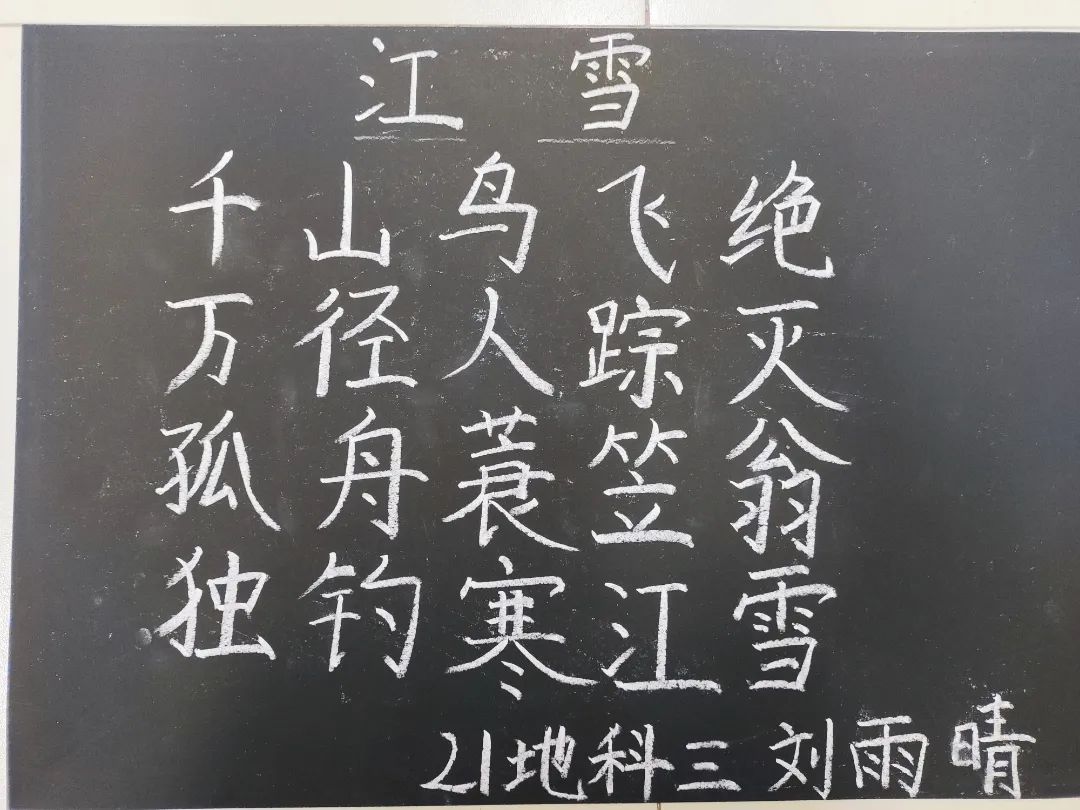 江雪
千山鸟飞绝
万径人踪灭
孤舟蓑笠翁
独钓寒江雪
21地科三 刘雨晴